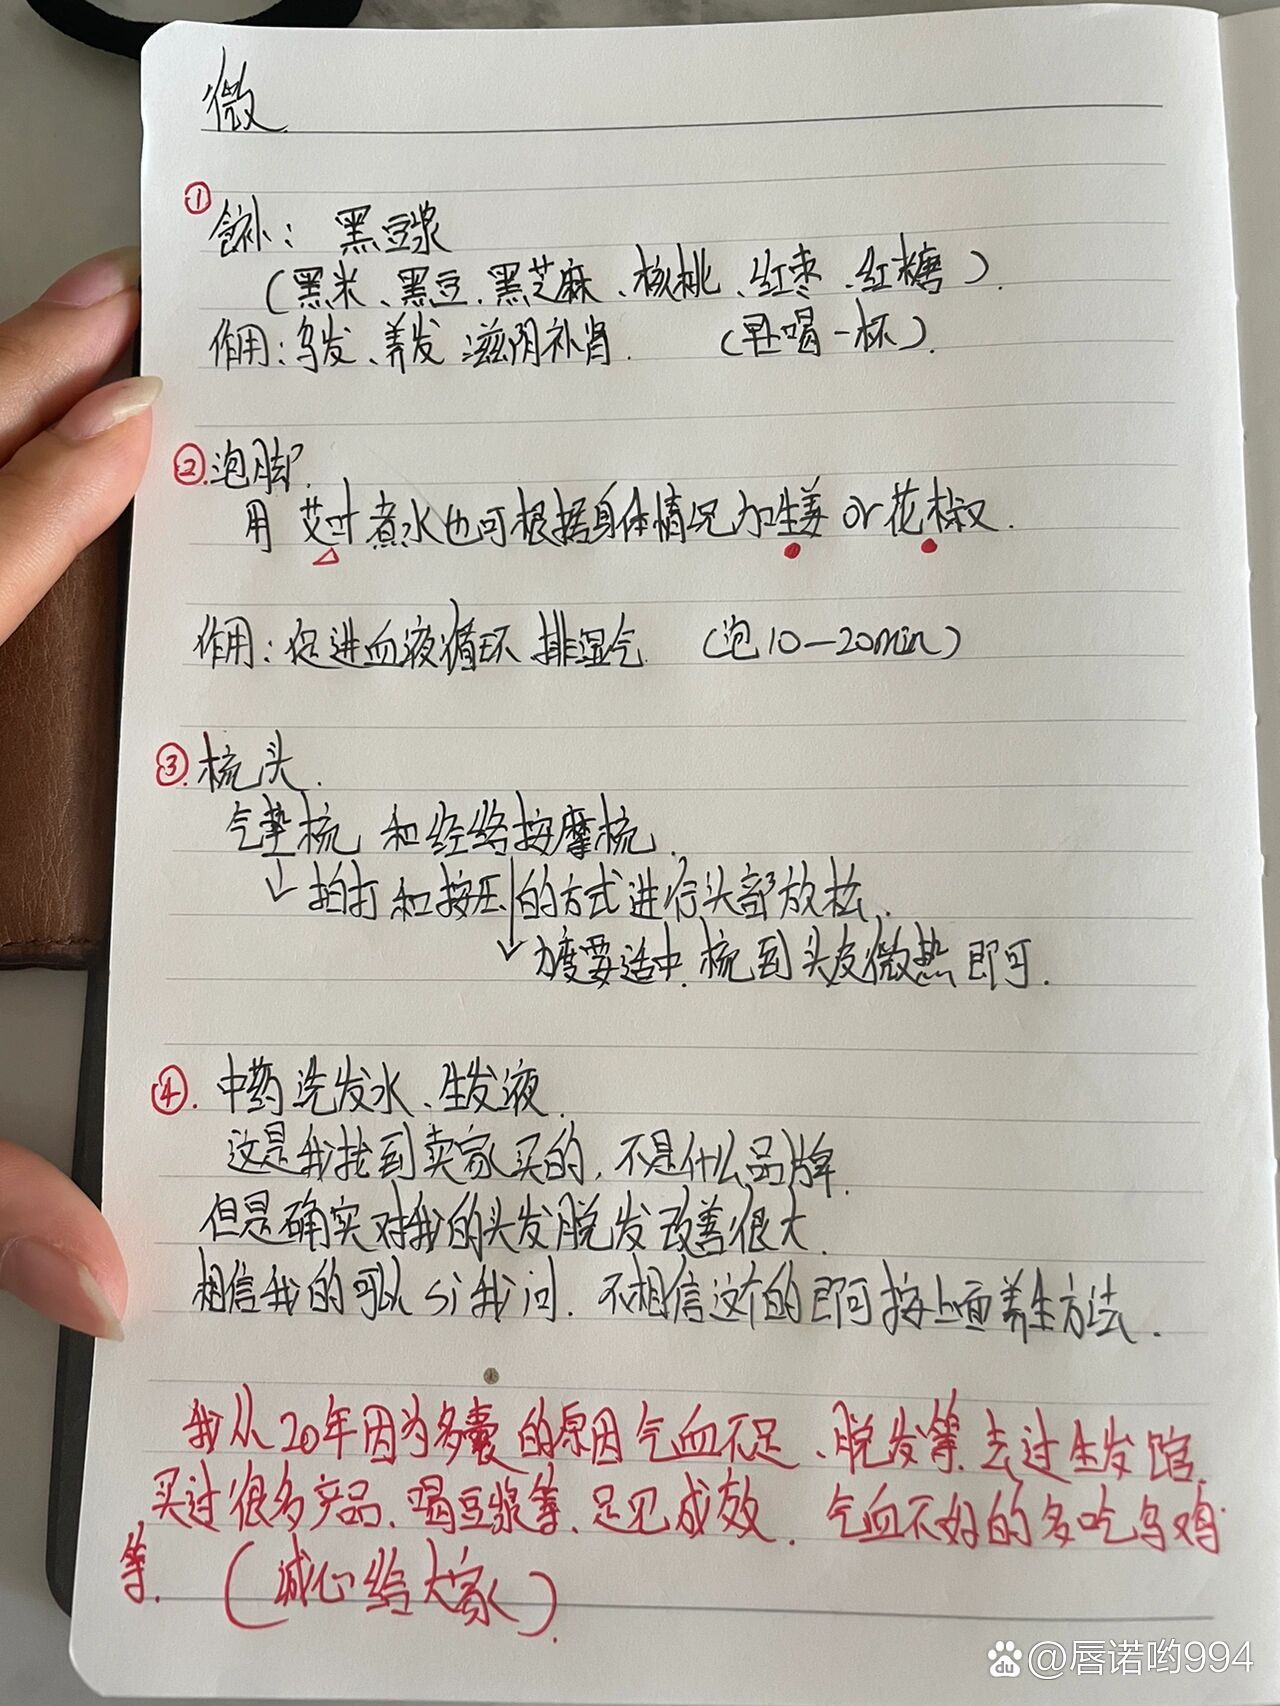 微
①食补：黑豆浆
（黑米、黑豆、黑芝麻、核桃、红枣、红糖）.
作用：乌发、养发 滋阴补肾. （早上喝一杯）.
②.泡脚.
用 艾叶煮水也可根据身体情况加生姜 or 花椒.
作用：促进血液循环 排湿气. （泡10-20min）
③.梳头.
气垫梳 和经络按摩梳.
拍打和按压的方式进行头部放松.
力度要适中.梳到头皮微热即可.
④.中药洗发水、生发液.
这是我找到卖家买的,不是什么品牌.
但是确实对我的头发脱发改善很大.
相信我的可以si我问. 不相信这个的即可按上面养生方法.
我从20年因为多囊的原因气血不足、脱发等.去过生发馆.
买过很多产品、喝豆浆等、足见成效. 气血不好的多吃乌鸡
等. （诚心给大家）.
@唇诺哟994